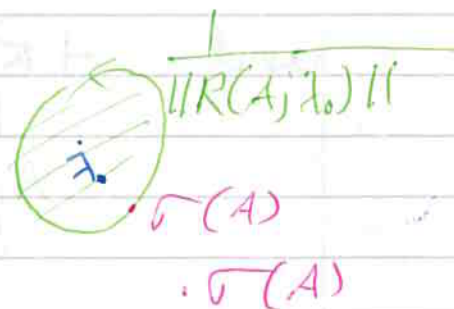 1
‖R(A; λ₀)‖
λ₀
σ(A)
σ(A)